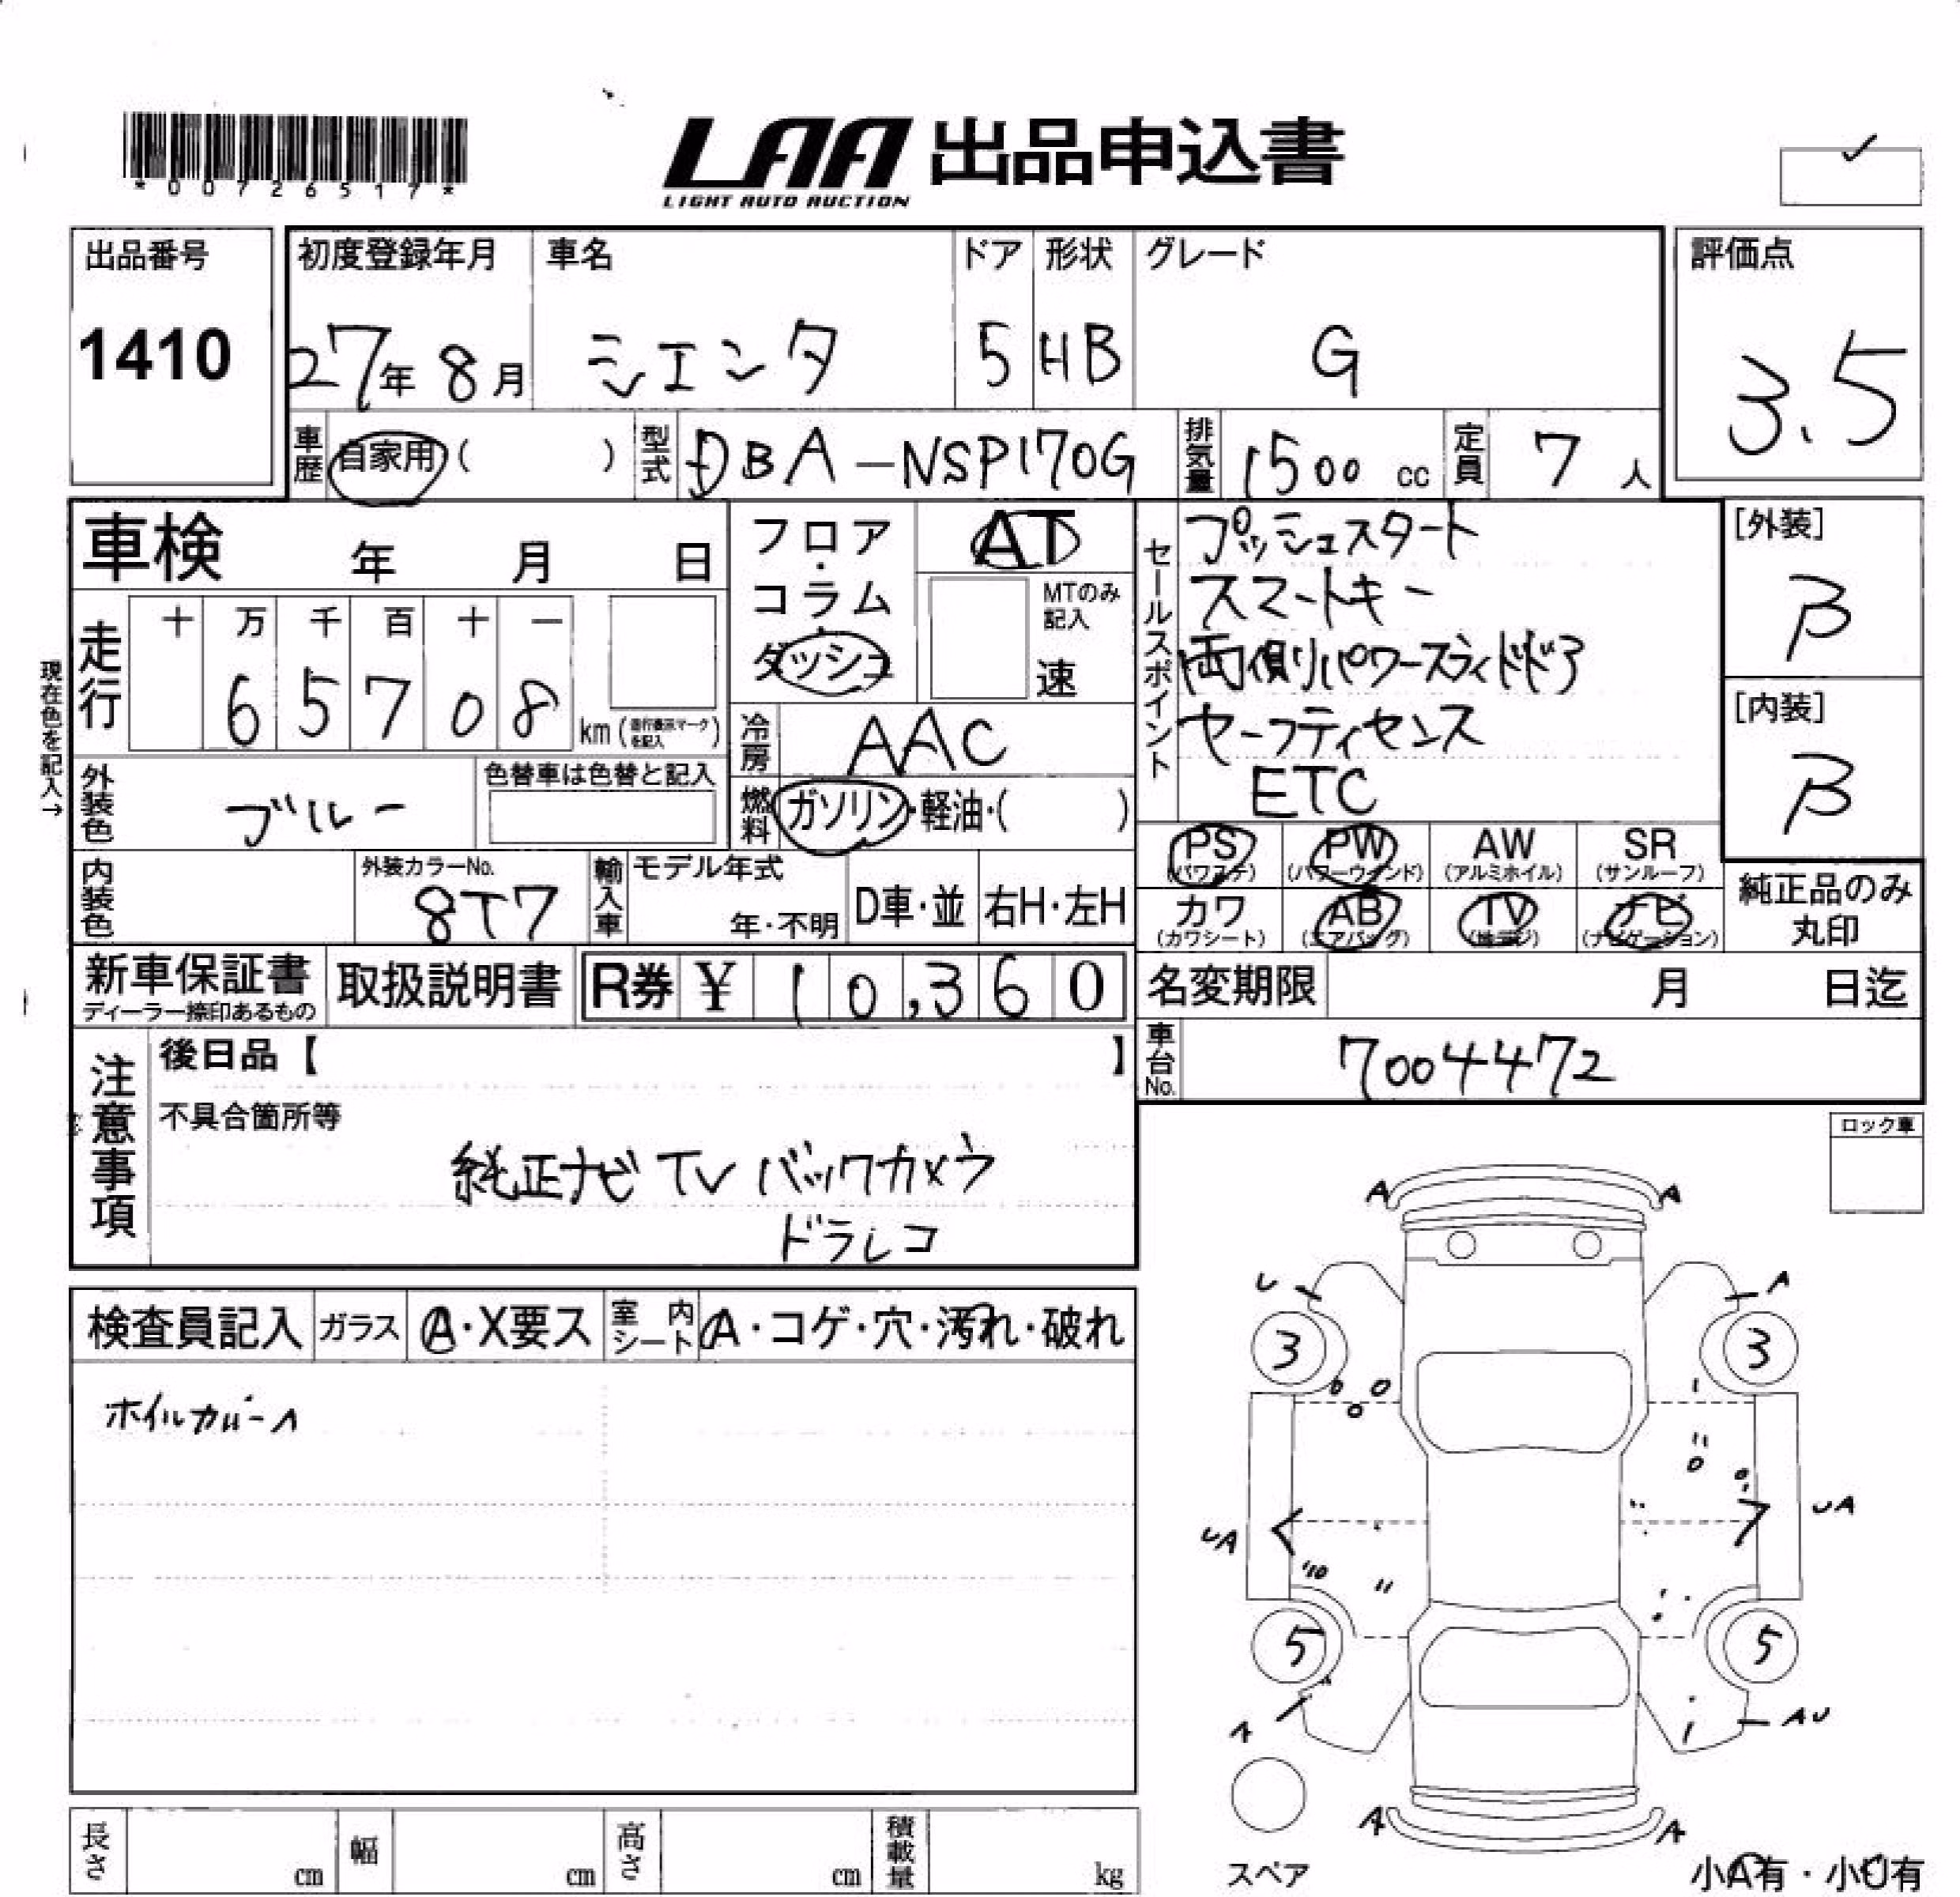 *00726517*
LAA 出品申込書
LIGHT AUTO AUCTION
出品番号
1410
初度登録年月
27年 8月
車名
シエンタ
ドア
5
形状
HB
グレード
G
評価点
3.5
車歴
自家用 ( )
型式
DBA-NSP170G
排気量
1500 cc
定員
7 人
車検 年 月 日
フロア・コラム・ダッシュ
AT
MTのみ記入
速
セールスポイント
プッシュスタート
スマートキー
両側パワースライドドア
セーフティセンス
ETC
[外装]
B
[内装]
B
現在色を記入→
走行
十 万 千 百 十 一
6 5 7 0 8
km (走行表示マークを記入)
冷房
AAC
外装色
ブルー
色替車は色替と記入
燃料
ガソリン・軽油・( )
PS (パワステ)
PW (パワーウインド)
AW (アルミホイル)
SR (サンルーフ)
カワ (カワシート)
AB (エアバッグ)
TV (地デジ)
ナビ (ナビゲーション)
純正品のみ丸印
内装色
外装カラーNo.
8T7
輸入車
モデル年式
年・不明
D車・並
右H・左H
新車保証書
ディーラー捺印あるもの
取扱説明書
R券 ¥ 10,360
名変期限 月 日迄
車台No.
7004472
注意事項
後日品【 】
不具合箇所等
純正ナビ TV バックカメラ
ドラレコ
ロック車
検査員記入
ガラス
A・X要ス
室内シート
A・コゲ・穴・汚れ・破れ
ホイルカバーA
A A
U A
3 3
UA UA
5 5
A AU
A A
スペア
小A有・小U有
長さ cm
幅 cm
高さ cm
積載量 kg